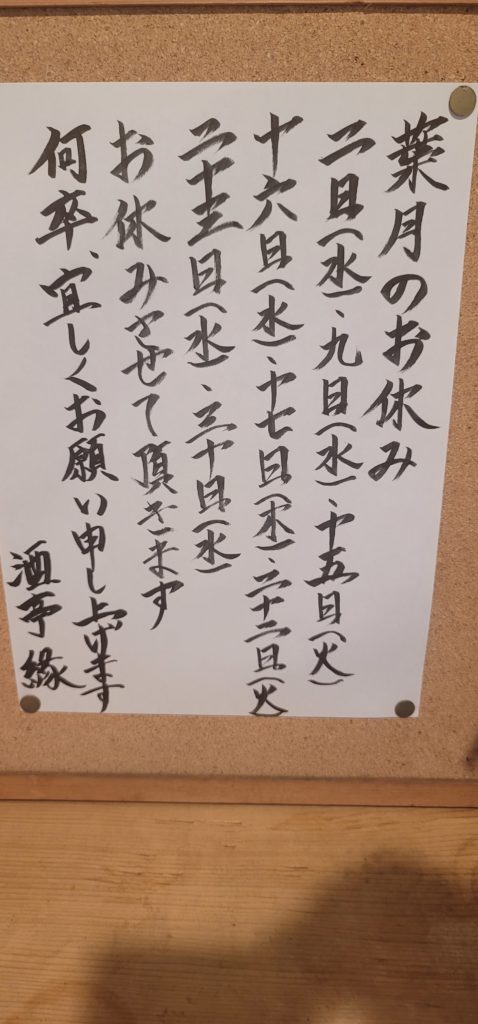 葉月のお休み
二日(水)、九日(水)、十五日(火)
十六日(水)、十七日(木)、二十二日(火)
二十三日(水)、三十日(水)
お休みさせて頂きます
何卒、宜しくお願い申し上げます
酒亭 縁